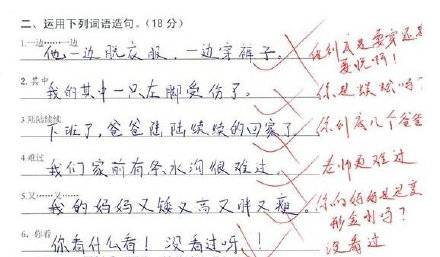 二、运用下列词语造句。(18 分)
1.一边……一边
他一边脱衣服，一边穿裤子。
他到底是要穿还是要脱啊！
2.其中
我的其中一只左脚受伤了。
你是蜈蚣吗？
3.陆陆续续
下班了，爸爸陆陆续续的回家了
你到底几个爸爸
4.难过
我们家前有条水沟很难过。
老师更难过
5.又……又……
我的妈妈又矮又高又胖又瘦。
你的妈妈是变形金刚吗？
6.你看
你看什么看！没看过呀！！
没看过